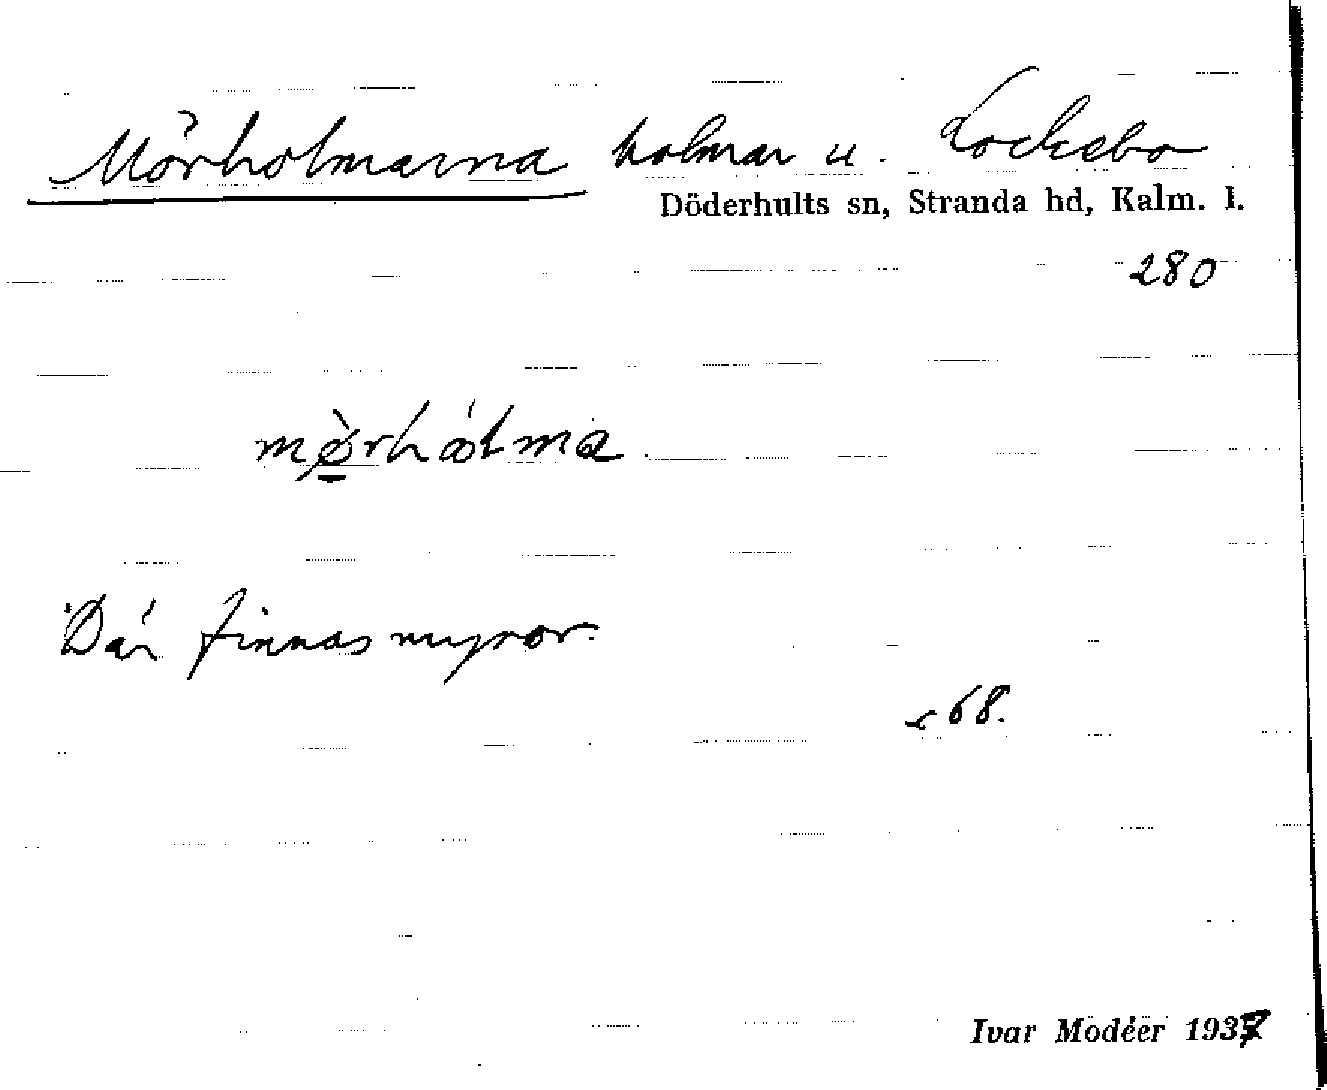 Mörholmarna holmar u. Lockebo
Döderhults sn, Stranda hd, Kalm. l.
280
mø̀rhålma
Där finnas myror.
s 68.
Ivar Modéer 1937